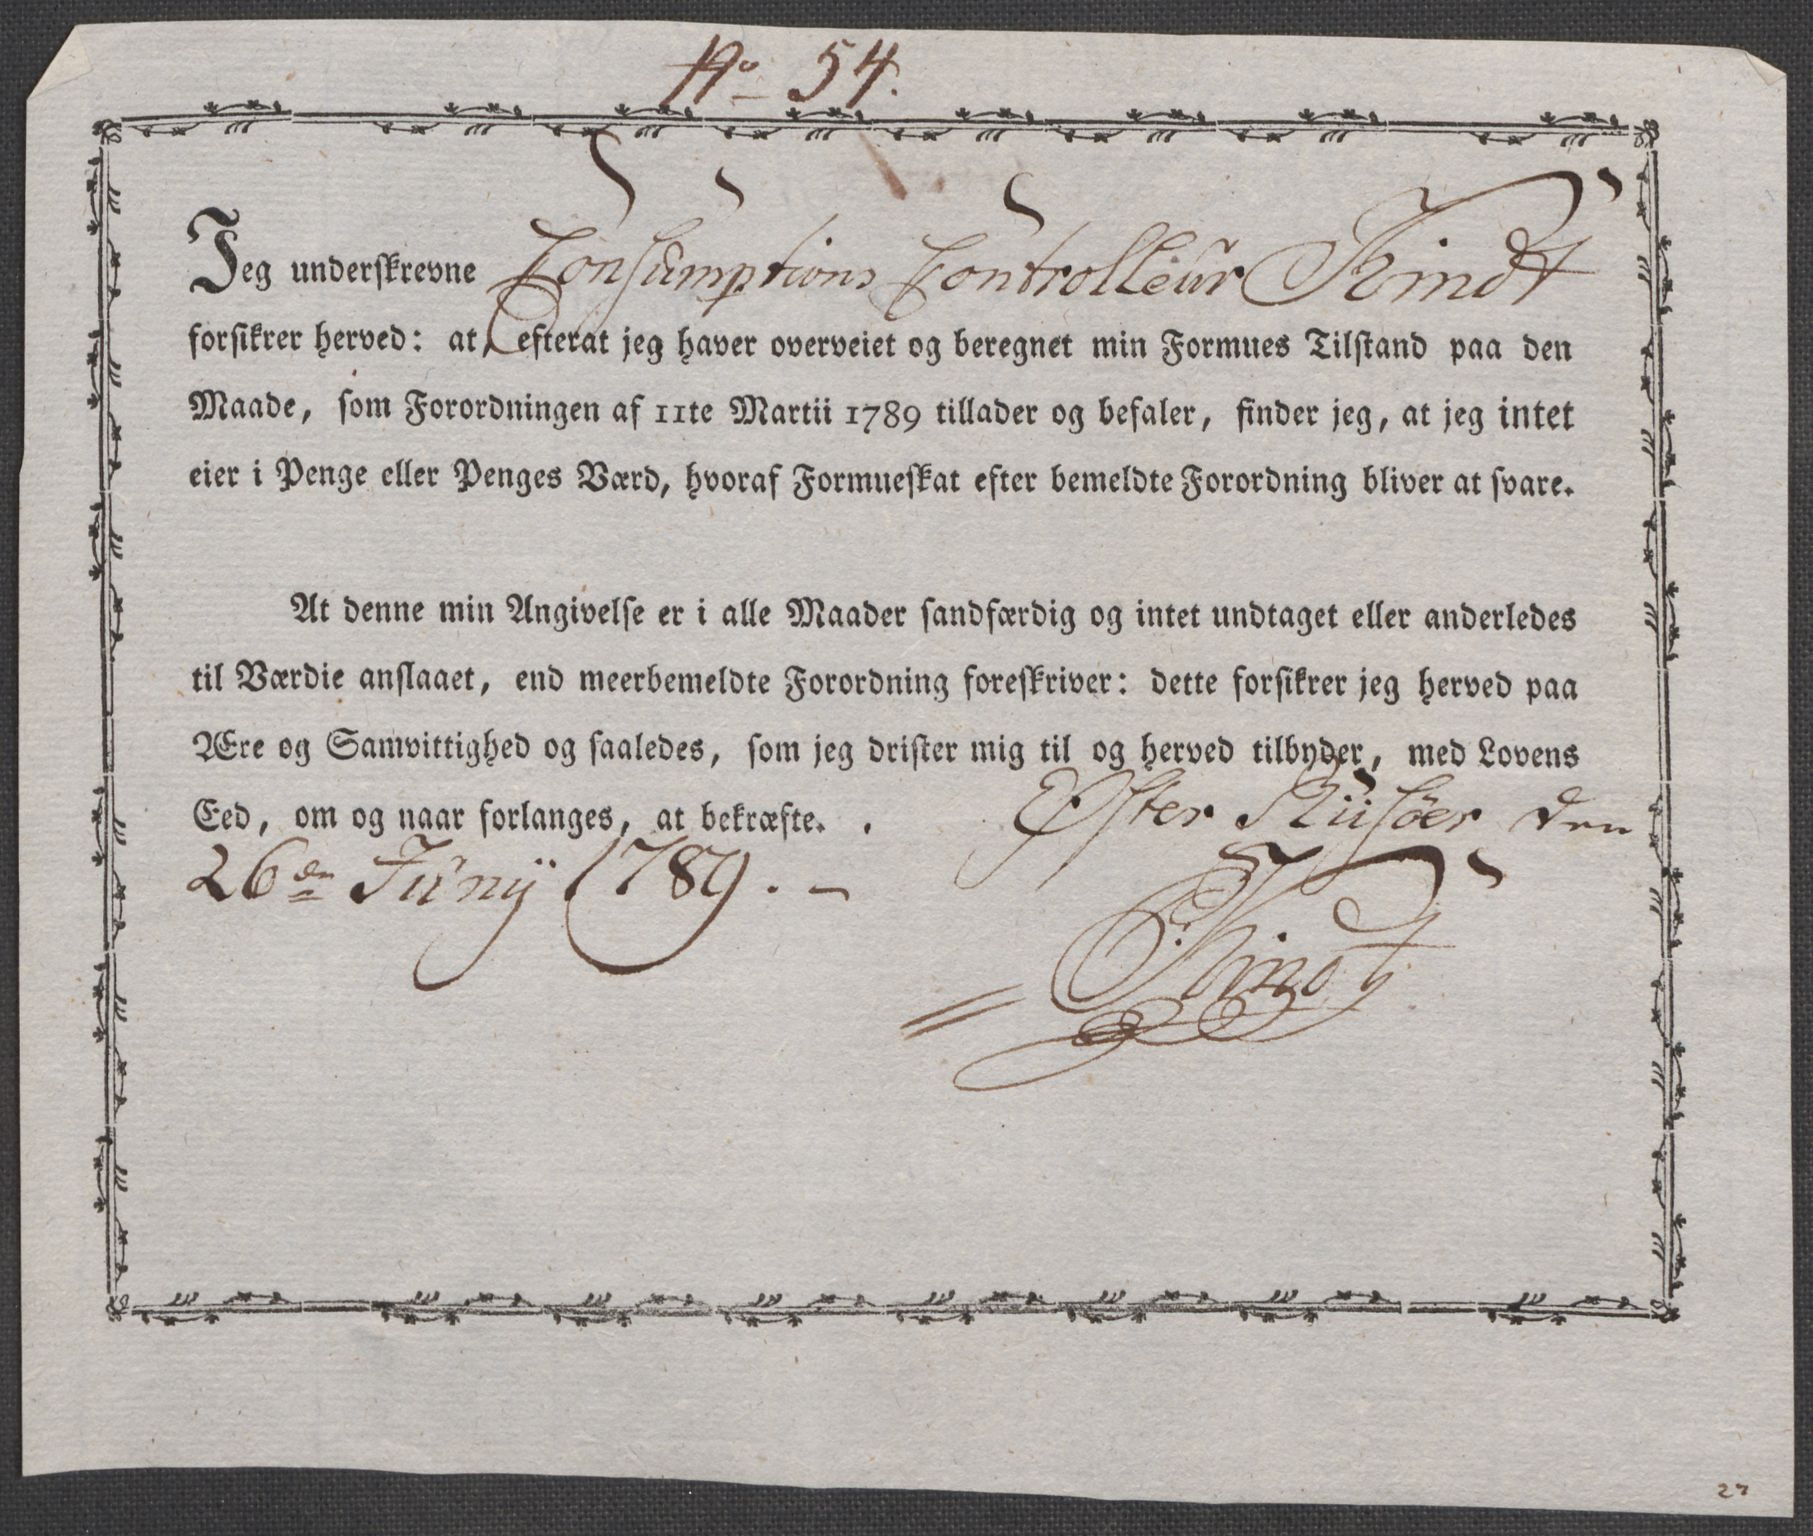 No 54.
Jeg underskrevne Consumptions Controlleur Kindt
forsikrer herved: at, efterat jeg haver overveiet og beregnet min Formues Tilstand paa den
Maade, som Forordningen af 11te Martii 1789 tillader og befaler, finder jeg, at jeg intet
eier i Penge eller Penges Værd, hvoraf Formueskat efter bemeldte Forordning bliver at svare.
At denne min Angivelse er i alle Maader sandfærdig og intet undtaget eller anderledes
til Værdie anslaaet, end meerbemeldte Forordning foreskriver: dette forsikrer jeg herved paa
Ære og Samvittighed og saaledes, som jeg drister mig til og herved tilbyder, med Lovens
Eed, om og naar forlanges, at bekræfte. . Øster Riisøer den
26de Junij 1789. -
Kindt
27